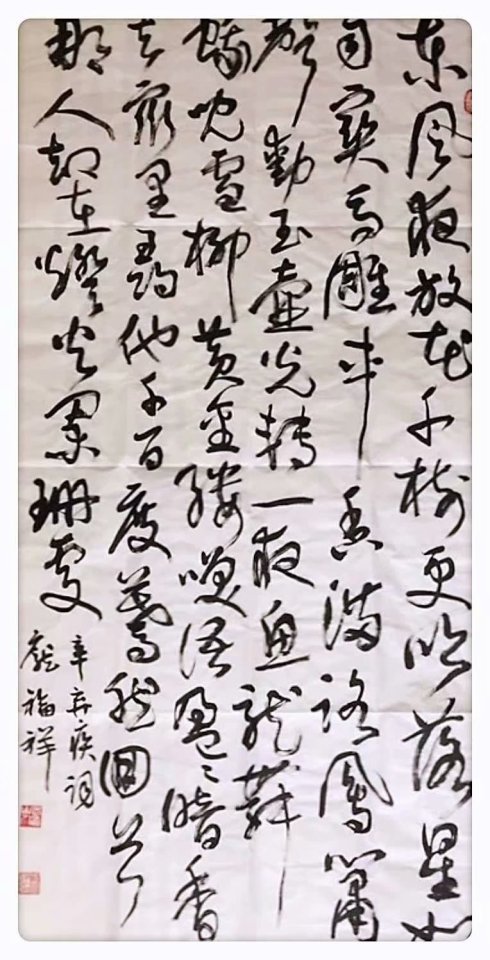 东风夜放花千树更吹落星如
雨宝马雕车香满路凤箫
声动玉壶光转一夜鱼龙舞
蛾儿雪柳黄金缕笑语盈々暗香
去众里寻他千百度蓦然回首
那人却在燈火阑珊处
辛弃疾词
龐福祥